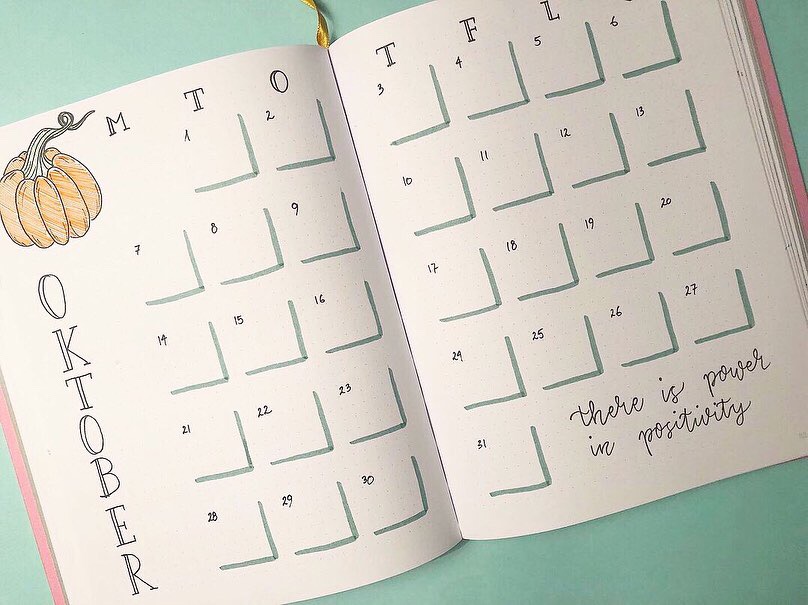 M T O T F L
1 2 3 4 5 6
7 8 9 10 11 12 13
14 15 16 17 18 19 20
21 22 23 24 25 26 27
28 29 30 31
OKTOBER
there is power
in positivity